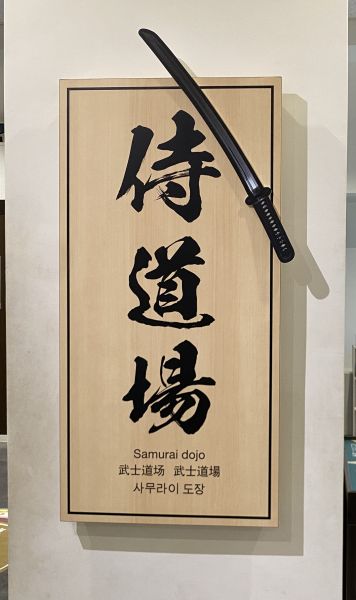 侍道場
Samurai dojo
武士道场 武士道場
사무라이 도장